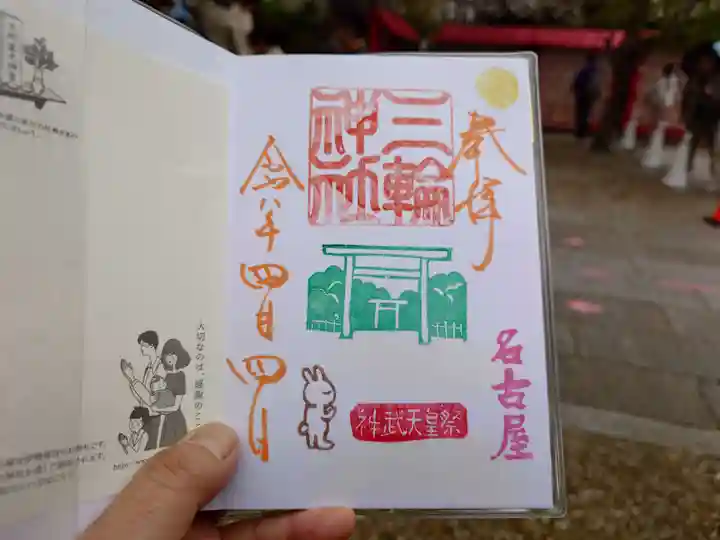 奉拝
三輪
神社
令和八年四月四日
名古屋
神武天皇祭
大切なのは、感謝のこ